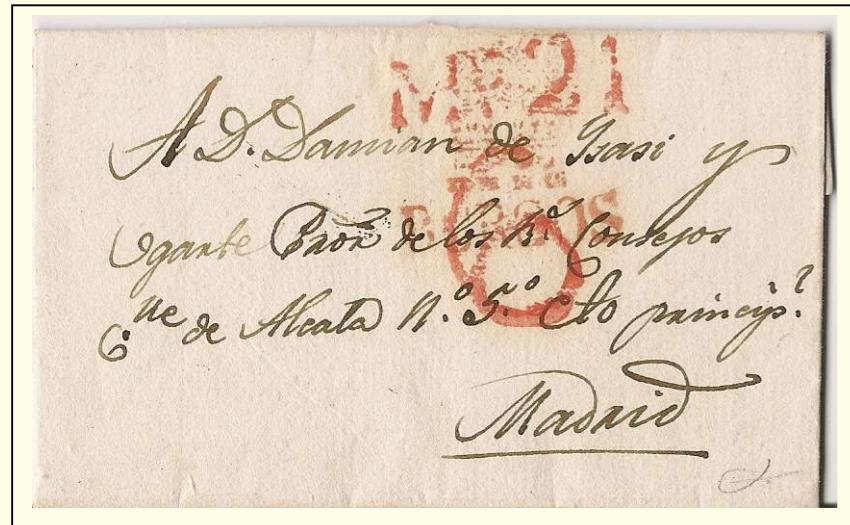 Mº 21
BURGOS
6
A D. Damian de Isasi y
Ugarte Pror de los Rs Consejos
C.lle de Alcala N.º 5.º Cto princip.l
Madrid